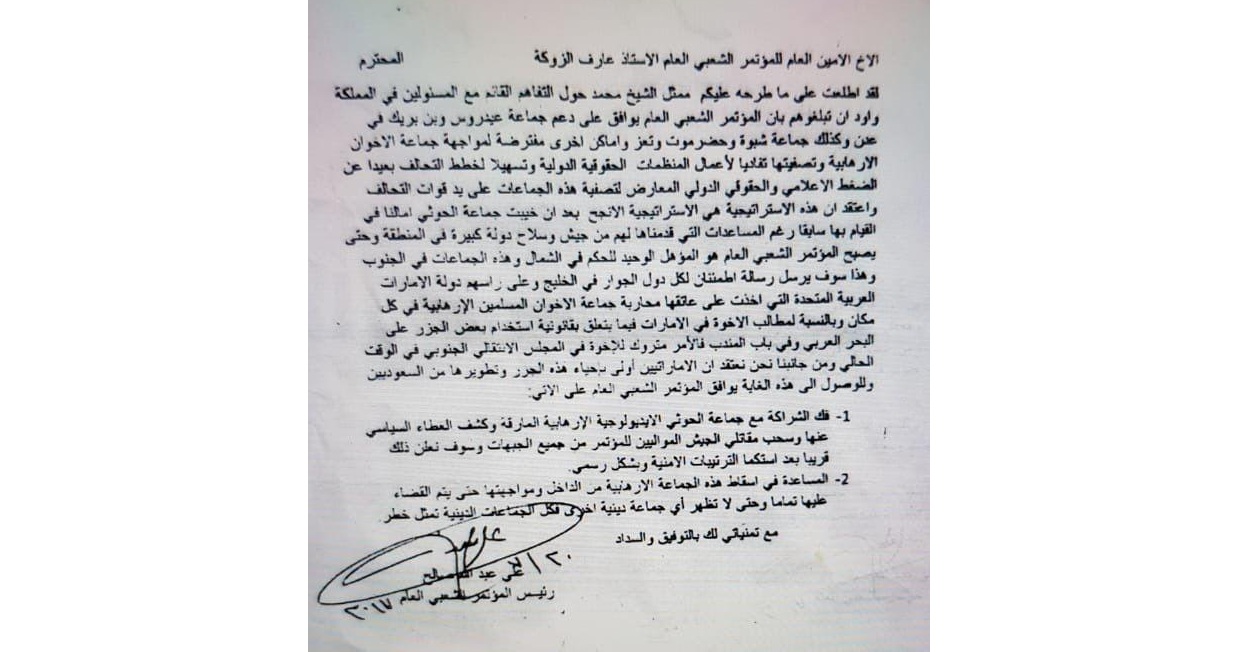 الاخ الامين العام للمؤتمر الشعبي العام الاستاذ عارف الزوكة المحترم
لقد اطلعت على ما طرحه عليكم ممثل الشيخ محمد حول التفاهم القائم مع المسئولين في المملكة
واود ان تبلغوهم بان المؤتمر الشعبي العام يوافق على دعم جماعة عيدروس وبن بريك في
عدن وكذلك جماعة شبوة وحضرموت وتعز واماكن اخرى مفترضة لمواجهة جماعة الاخوان
الارهابية وتصفيتها تفاديا لأعمال المنظمات الحقوقية الدولية وتسهيلا لخطط التحالف بعيدا عن
الضغط الاعلامي والحقوقي الدولي المعارض لتصفية هذه الجماعات على يد قوات التحالف
واعتقد ان هذه الاستراتيجية هي الاستراتيجية الانجح بعد ان خيبت جماعة الحوثي امالنا في
القيام بها سابقا رغم المساعدات التي قدمناها لهم من جيش وسلاح دولة كبيرة في المنطقة وحتى
يصبح المؤتمر الشعبي العام هو المؤهل الوحيد للحكم في الشمال وهذه الجماعات في الجنوب
وهذا سوف يرسل رسالة اطمئنان لكل دول الجوار في الخليج وعلى راسهم دولة الامارات
العربية المتحدة التي اخذت على عاتقها محاربة جماعة الاخوان المسلمين الإرهابية في كل
مكان وبالنسبة لمطالب الاخوة في الامارات فيما يتعلق بقانونية استخدام بعض الجزر على
البحر العربي وفي باب المندب فالأمر متروك للإخوة في المجلس الانتقالي الجنوبي في الوقت
الحالي ومن جانبنا نحن نعتقد ان الاماراتيين أولى بإحياء هذه الجزر وتطويرها من السعوديين
وللوصول الى هذه الغاية يوافق المؤتمر الشعبي العام على الاتي:
1- فك الشراكة مع جماعة الحوثي الايديولوجية الإرهابية المارقة وكشف الغطاء السياسي
عنها وسحب مقاتلي الجيش المواليين للمؤتمر من جميع الجبهات وسوف نعلن ذلك
قريبا بعد استكما الترتيبات الامنية وبشكل رسمي.
2- المساعدة في اسقاط هذه الجماعة الارهابية من الداخل ومواجهتها حتى يتم القضاء
عليها تماما وحتى لا تظهر أي جماعة دينية اخرى فكل الجماعات الدينية تمثل خطر
مع تمنياتي لك بالتوفيق والسداد
علي عبدالله صالح
رئيس المؤتمر الشعبي العام ٢٠١٧